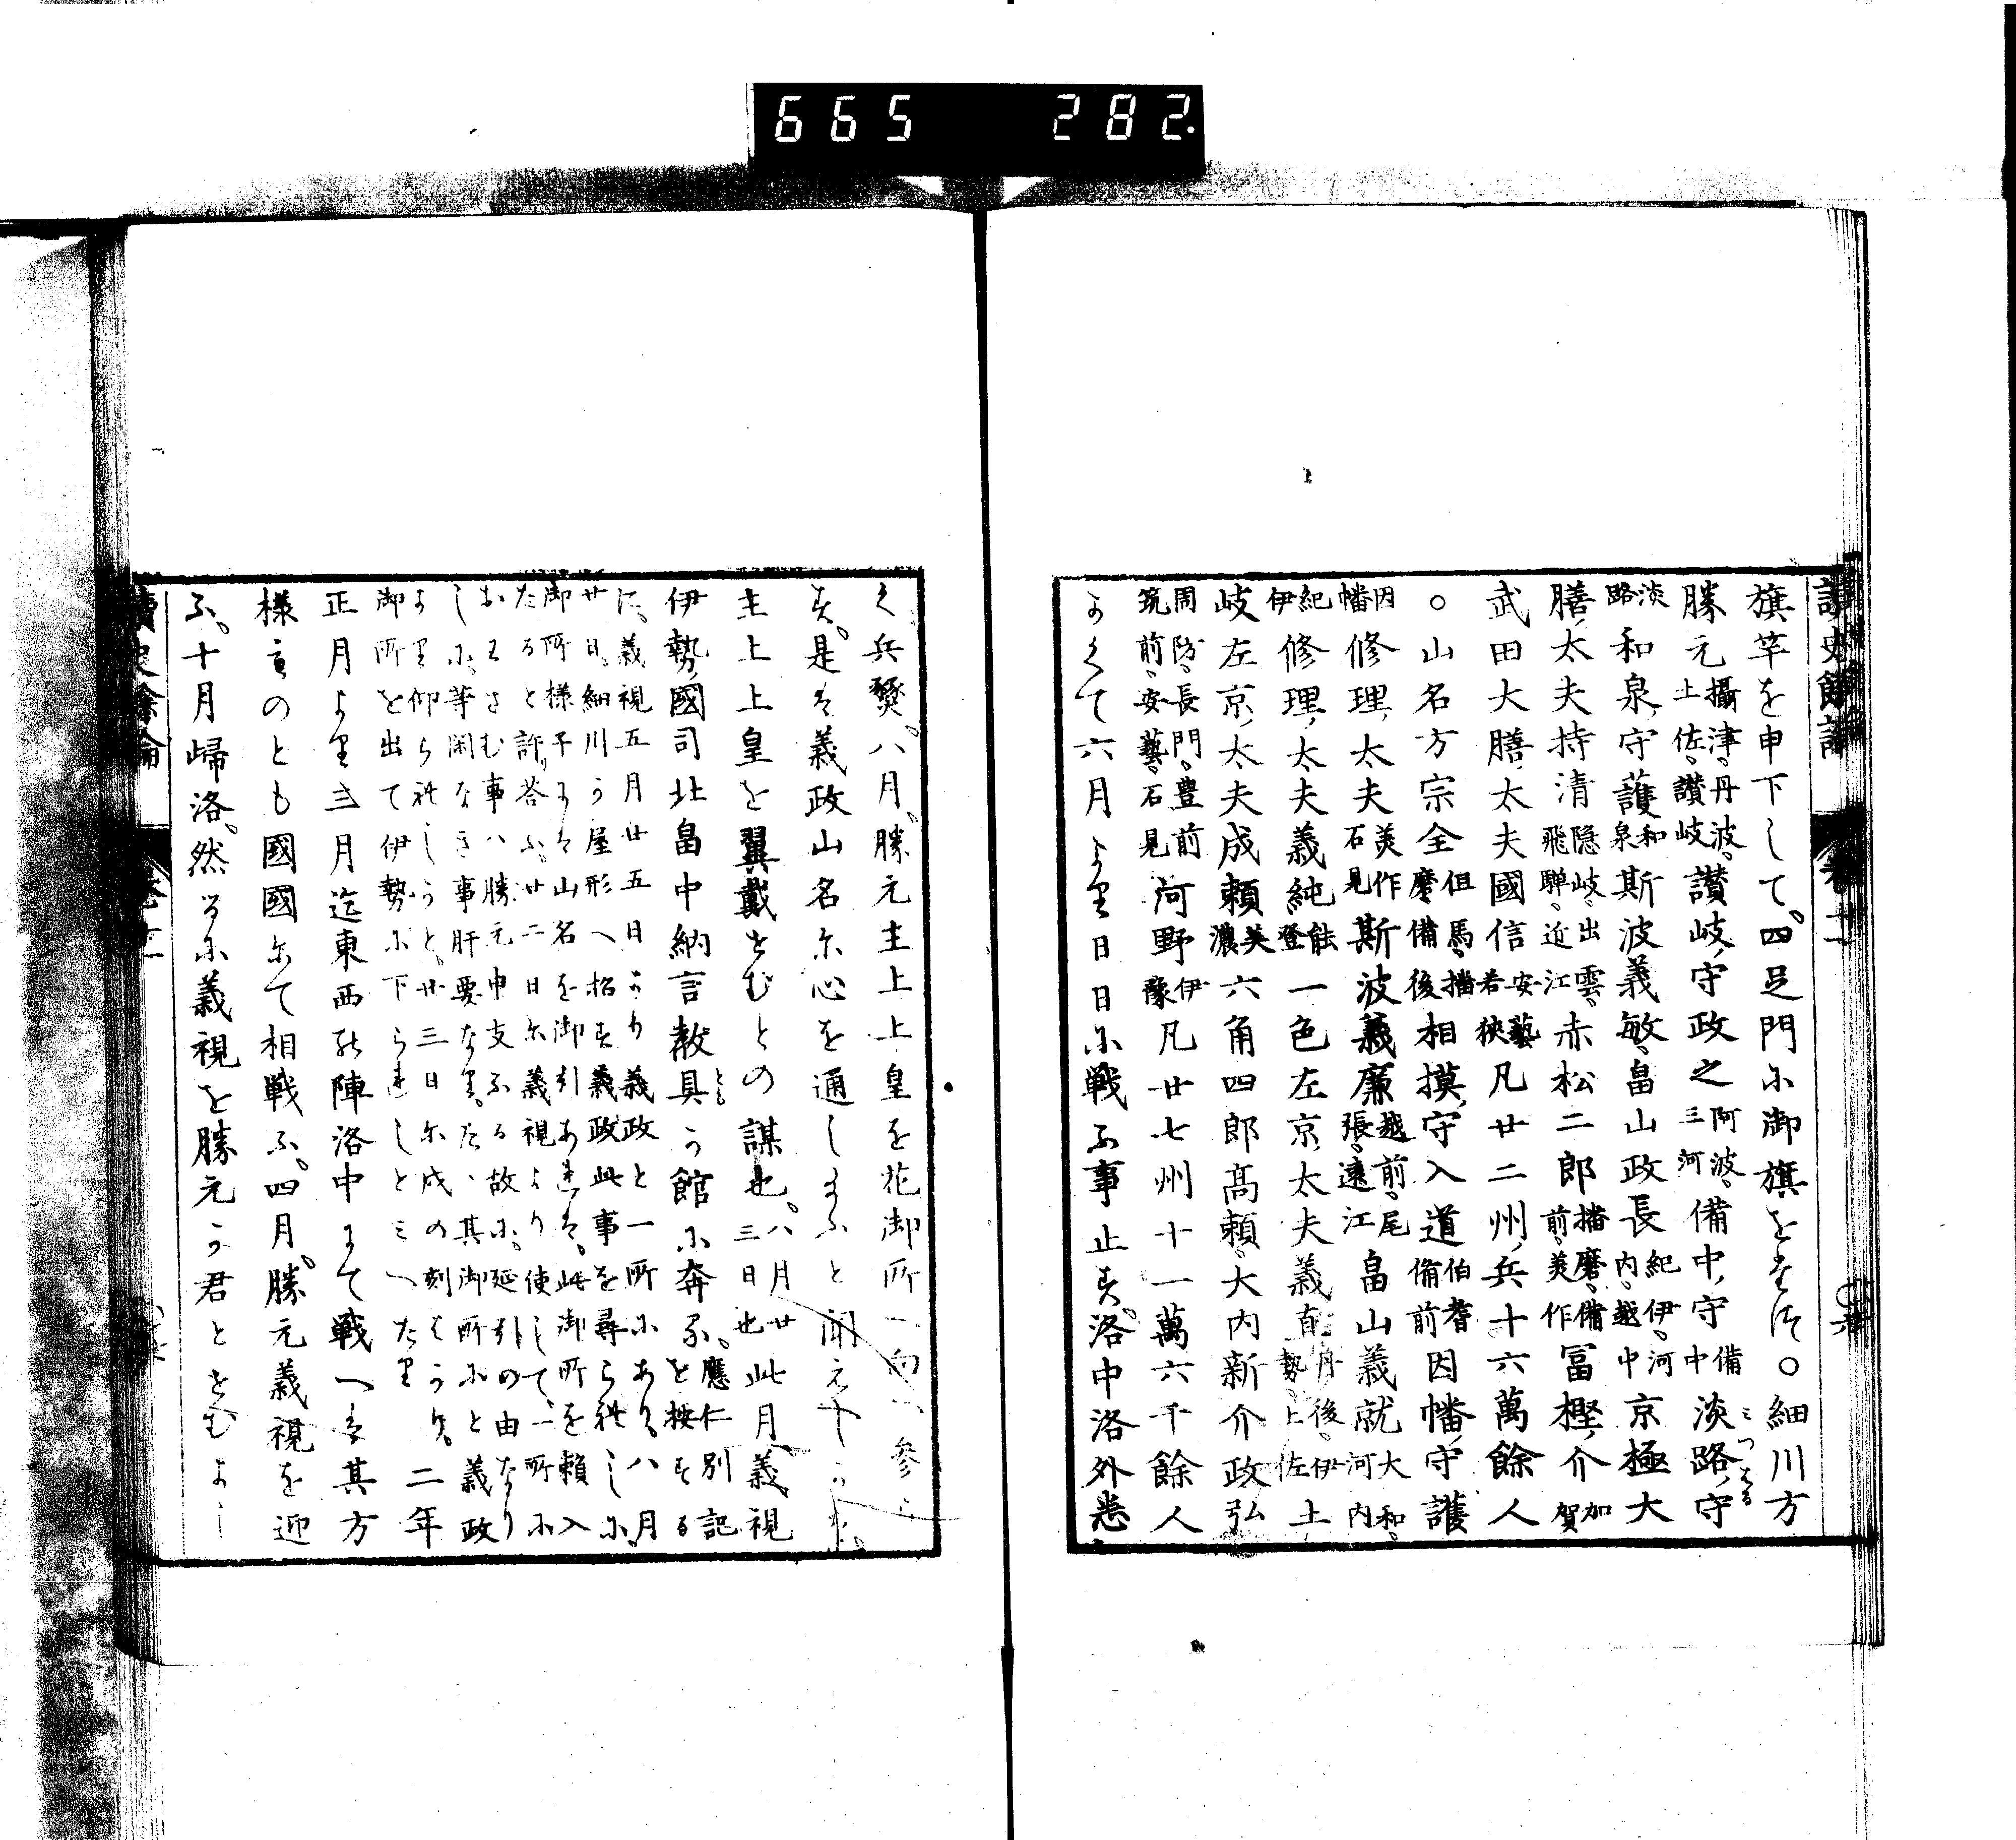 665 282.
旗竿を申下して。四足門に御旗をたつ。○細川方
勝元攝津。丹波。土佐。讃岐讃岐守政之阿波。三河備中守備中淡路守
淡路和泉守護和泉斯波義敏。畠山政長紀伊。河内。越中京極大
膳太夫持清隠岐。出雲。飛騨。近江赤松二郎播磨。備前。美作冨樫介加賀
武田大膳太夫國信安藝若狹凡廿二州兵十六萬餘人
○山名方宗全但馬。播磨。備後相摸守入道伯耆備前因幡守護
因幡修理太夫美作石見斯波義廉越前。尾張。遠江畠山義就大和。河内
紀伊修理太夫義純能登一色左京太夫義直丹後。伊勢。土佐土
岐左京太夫成頼美濃六角四郎髙頼。大内新介政弘
周防。長門。豊前筑前。安藝。石見河野伊豫凡廿七州十一萬六千餘人
かくて六月より日日に戦ふ事止す。洛中洛外悉
く兵燹。八月。勝元主上上皇を花御所へ向へ参ら
す。是は義政山名に心を通し給ふと聞えしかは。
主上上皇を翼戴せむとの謀也。八月廿三日也此月義視
伊勢國司北畠中納言教具か館に奔る。應仁別記を按する
に。義視五月廿五日より義政と一所にあり。八月
廿日。細川か屋形へ招き義政此事を尋られしに。
御所様子よは山名を御引あれは。此御所を頼入
たると許答ふ。廿二日に義視より使して。一所に
おはさむ事ハ勝元申支ふる故に。延引の由なり
しに。等閑なき事肝要なり。たゝ其御所にと義政
より仰られしかと。廿三日に戌の刻はかり
御所を出て伊勢に下られしとミへたり二年
正月より三月迄東西の陣洛中にて戦へは其方
様々のとも國國にて相戦ふ。四月。勝元義視を迎
ふ。十月歸洛。然るに義視を勝元か君とせむよし